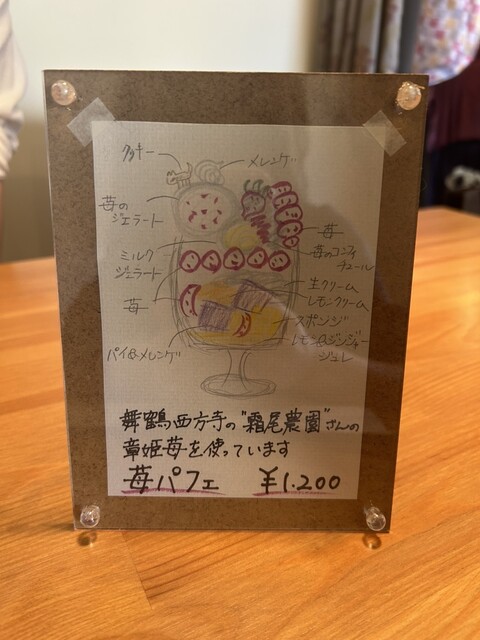 クッキー
メレンゲ
苺の
ジェラート
苺
苺のコンフィ
チュール
ミルク
ジェラート
生クリーム
レモンクリーム
苺
スポンジ
パイ&メレンゲ
レモン&ジンジャー
ジュレ
舞鶴西方寺の"霜尾農園"さんの
章姫苺を使っています
苺パフェ ¥1.200